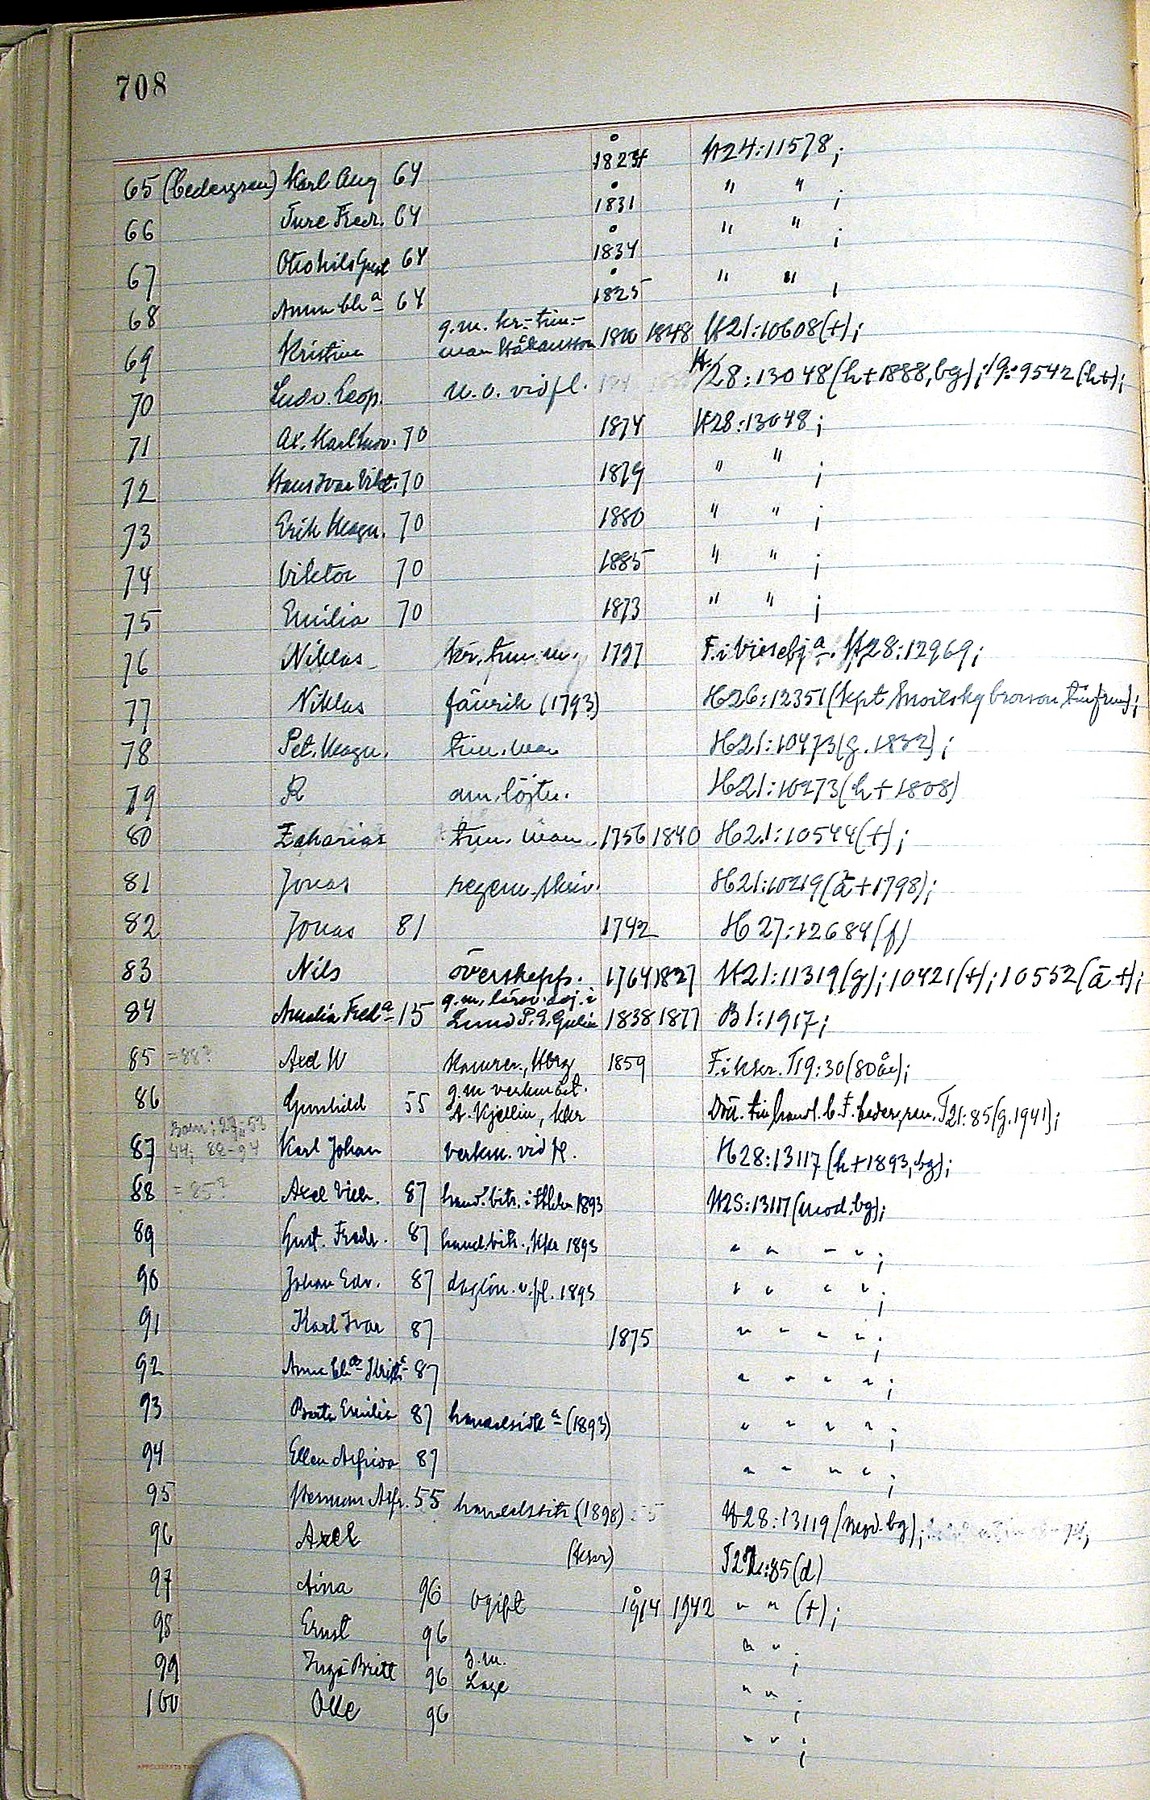 708
65 (Cedergren) Karl Aug 64 1824 H24:11578;
66 Ture Fredr. 64 1831 " " ;
67 Otto Nils Gust 64 1834 " " ;
68 Anna Ch:a 64 1825 " " ;
69 Kristina g.m. kr.-tim-
man Håkansson 1848 H21:10608(†);
70 Ludv. Leop. u.o. vid fl. H28:13048(h†1888, bg); 9542(h†);
71 Al. Karl 70 1874 H28:13048;
72 Hans Ivar Vikt. 70 1879 " " ;
73 Erik Magn. 70 1880 " " ;
74 Viktor 70 1885 " " ;
75 Emilia 70 1873 " " ;
76 Niklas kr. tim.m. 1797 H28:12969;
77 Niklas fänrik (1793) H26:12351(kpt Snoilsky
78 Pet. Magn. tim. man H21:10473(g.1832);
79 R am. löjtn. H21:10273(h†1808)
80 Zakarias tim. man. 1756 1840 H21:10544(†);
81 Jonas regem. skriv. H21:10219(ä†1798);
82 Jonas 81 1742 H27:12684(f)
83 Nils överskepp. 1764 1827 H21:11319(g); 10421(†); 10532(ä†);
84 Amalia Fred:a 15 g.m. lärov. adj. i
Lund P. E. 1838 1877 B1:1917;
85 =88? Axel W Kamrer., Hbrg 1859 F. i Kkr. T19:30(80år);
86 Gunhild 55 g.m. verkmäst.
A. Kjellin, Kkr F. Cedergren. T21:85(g.1941);
87 Barn: 27-53
44; 88-94 Karl Johan verkm. vid fl. H28:13117(h†1893, bg);
88 =85? Axel Vilh. 87 hand. bitr. i 1893 H28:13117(mod. bg);
89 Gust. Fredr. 87 handbitr., Kkr 1893 " " " " ;
90 Johan Edv. 87 daglön. v. fl. 1893 " " " " ;
91 Karl Ivar 87 1875 " " " " ;
92 Anna Ch:a 87 " " " " ;
93 Berta Emilia 87 (1893) " " " " ;
94 Ellen Alfrida 87 " " " " ;
95 Herman Alfr. 55 handelsbitr (1898) H28:13119(mod. bg);
96 Axel (Kkr) :85(d)
97 Aina 96 ogift 1914 1942 " " (†);
98 Ernst 96 " " ;
99 Inga Britt 96 g.m.
Lage " " ;
100 Olle 96 " " ;